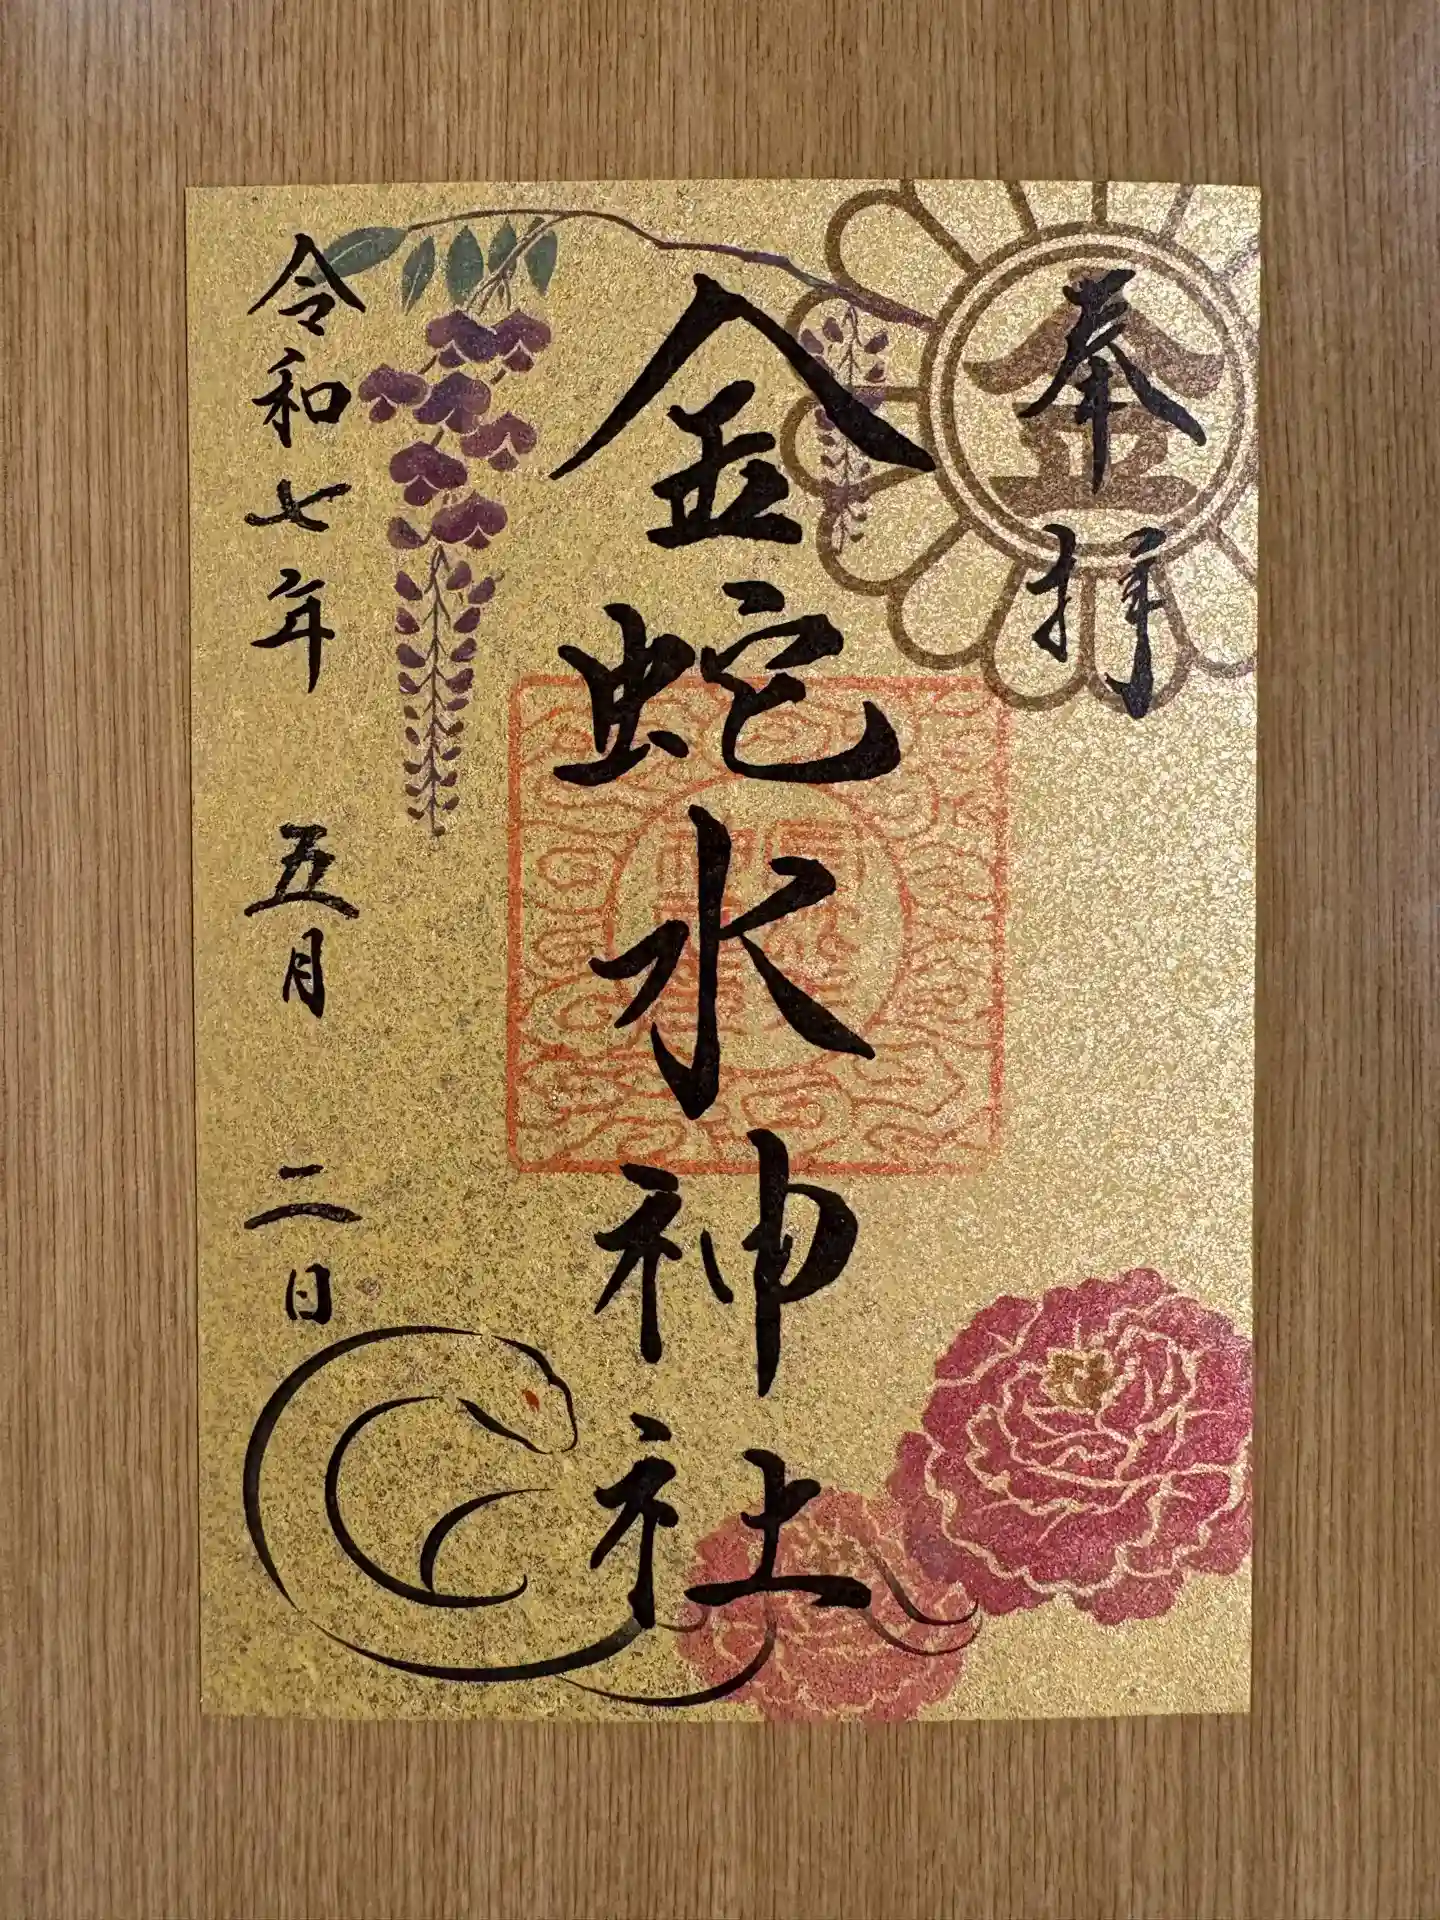 奉拝
金
金蛇水神社
令和七年 五月 二日